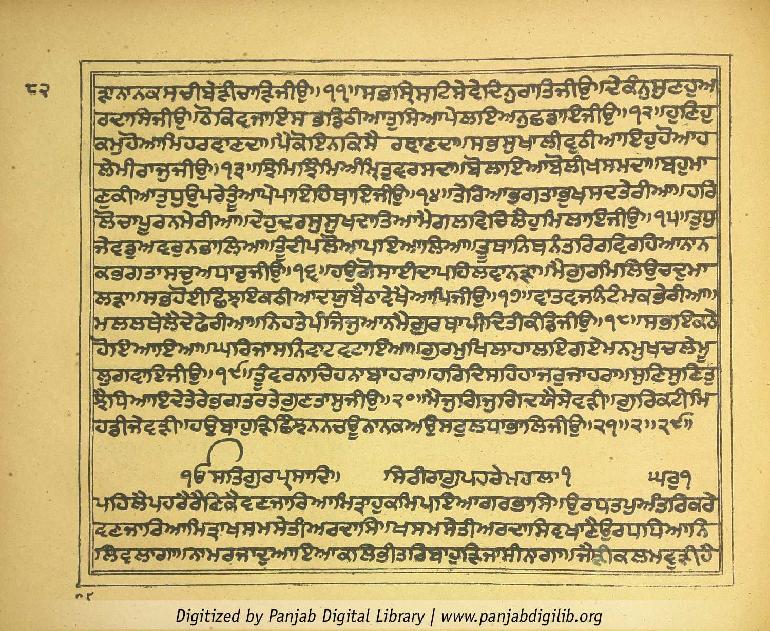 ੮੨
ੜਾ ਨਾਨਕ ਸਚੀ ਬੇੜੀ ਚਾੜਿ ਜੀਉ॥੧੧॥ ਸਭਾ ਸ੍ਰਿਸਟਿ ਸੇਵੇ ਦਿਨੁ ਰਾਤਿ ਜੀਉ॥ ਦੇ ਕੰਨੁ ਸੁਣਹੁ ਅ
ਰਦਾਸਿ ਜੀਉ॥ ਠੋਕਿ ਵਜਾਇ ਸਭ ਡਿਠੀਆ ਤੁਸਿ ਆਪੇ ਲਇਅਨੁ ਛਡਾਇ ਜੀਉ॥੧੨॥ ਹੁਣਿ ਹੁ
ਕਮੁ ਹੋਆ ਮਿਹਰਵਾਣ ਦਾ॥ ਪੈ ਕੋਇ ਨ ਕਿਸੈ ਰਞਾਣਦਾ॥ ਸਭ ਸੁਖਾਲੀ ਵੁਠੀਆ ਇਹੁ ਹੋਆ ਹ
ਲੇਮੀ ਰਾਜੁ ਜੀਉ॥੧੩॥ ਝਿੰਮਿ ਝਿੰਮਿ ਅੰਮ੍ਰਿਤੁ ਵਰਸਦਾ॥ ਬੋਲਾਇਆ ਬੋਲੀ ਖਸਮ ਦਾ॥ ਬਹੁ ਮਾ
ਣੁ ਕੀਆ ਤੁਧੁ ਉਪਰੇ ਤੂੰ ਆਪੇ ਪਾਇਹਿ ਥਾਇ ਜੀਉ॥੧੪॥ ਤੇਰਿਆ ਭਗਤਾ ਭੁਖ ਸਦ ਤੇਰੀਆ॥ ਹਰਿ
ਲੋਚਾ ਪੂਰਨ ਮੇਰੀਆ॥ ਦੇਹੁ ਦਰਸੁ ਸੁਖਦਾਤਿਆ ਮੈ ਗਲ ਵਿਚਿ ਲੈਹੁ ਮਿਲਾਇ ਜੀਉ॥੧੫॥ ਤੁਧੁ
ਜੇਵਡੁ ਅਵਰੁ ਨ ਭਾਲਿਆ॥ ਤੂੰ ਦੀਪ ਲੋਅ ਪਇਆਲਿਆ॥ ਤੂ ਥਾਨਿ ਥਨੰਤਰਿ ਰਵਿ ਰਹਿਆ ਨਾਨ
ਕ ਭਗਤਾ ਸਚੁ ਅਧਾਰੁ ਜੀਉ॥੧੬॥ ਹਉ ਗੋਸਾਈ ਦਾ ਪਹਿਲਵਾਨੜਾ॥ ਮੈ ਗੁਰ ਮਿਲਿ ਉਚ ਦੁਮਾ
ਲੜਾ॥ ਸਭ ਹੋਈ ਛਿੰਝ ਇਕਠੀਆ ਦਯੁ ਬੈਠਾ ਵੇਖੈ ਆਪਿ ਜੀਉ॥੧੭॥ ਵਾਤ ਵਜਨਿ ਟੰਮਕ ਭੇਰੀਆ॥
ਮਲ ਲਥੇ ਲੈਦੇ ਫੇਰੀਆ॥ ਨਿਹਤੇ ਪੰਜਿ ਜੁਆਨ ਮੈ ਗੁਰ ਥਾਪੀ ਦਿਤੀ ਕੰਡਿ ਜੀਉ॥੧੮॥ ਸਭ ਇਕਠੇ
ਹੋਇ ਆਇਆ॥ ਘਰਿ ਜਾਸਨਿ ਵਾਟ ਵਟਾਇਆ॥ ਗੁਰਮੁਖਿ ਲਾਹਾ ਲੈ ਗਏ ਮਨਮੁਖ ਚਲੇ ਮੂ
ਲੁ ਗਵਾਇ ਜੀਉ॥੧੯॥ ਤੂੰ ਵਰਨਾ ਚਿਹਨਾ ਬਾਹਰਾ॥ ਹਰਿ ਦਿਸਹਿ ਹਾਜਰੁ ਜਾਹਰਾ॥ ਸੁਣਿ ਸੁਣਿ ਤੁ
ਝੈ ਧਿਆਇਦੇ ਤੇਰੇ ਭਗਤ ਰਤੇ ਗੁਣਤਾਸੁ ਜੀਉ॥੨੦॥ ਮੈ ਜੁਗਿ ਜੁਗਿ ਦਯੈ ਸੇਵੜੀ॥ ਗੁਰਿ ਕਟੀ ਮਿ
ਹਡੀ ਜੇਵੜੀ॥ ਹਉ ਬਾਹੁੜਿ ਛਿੰਝ ਨ ਨਚਊ ਨਾਨਕ ਅਉਸਰੁ ਲਧਾ ਭਾਲਿ ਜੀਉ॥੨੧॥੨॥੨੯॥
ੴ ਸਤਿਗੁਰ ਪ੍ਰਸਾਦਿ॥ ਸਿਰੀਰਾਗੁ ਪਹਰੇ ਮਹਲਾ ੧ ਘਰੁ ੧
ਪਹਿਲੈ ਪਹਰੈ ਰੈਣਿ ਕੈ ਵਣਜਾਰਿਆ ਮਿਤ੍ਰਾ ਹੁਕਮਿ ਪਇਆ ਗਰਭਾਸਿ॥ ਉਰਧ ਤਪੁ ਅੰਤਰਿ ਕਰੇ
ਵਣਜਾਰਿਆ ਮਿਤ੍ਰਾ ਖਸਮ ਸੇਤੀ ਅਰਦਾਸਿ॥ ਖਸਮ ਸੇਤੀ ਅਰਦਾਸਿ ਵਖਾਣੈ ਉਰਧ ਧਿਆਨਿ
ਲਿਵ ਲਾਗਾ॥ ਨਾ ਮਰਜਾਦੁ ਆਇਆ ਕਲਿ ਭੀਤਰਿ ਬਾਹੁੜਿ ਜਾਸੀ ਨਾਗਾ॥ ਜੈਸੀ ਕਲਮ ਵੁੜੀ ਹੈ
Digitized by Panjab Digital Library | www.panjabdigilib.org